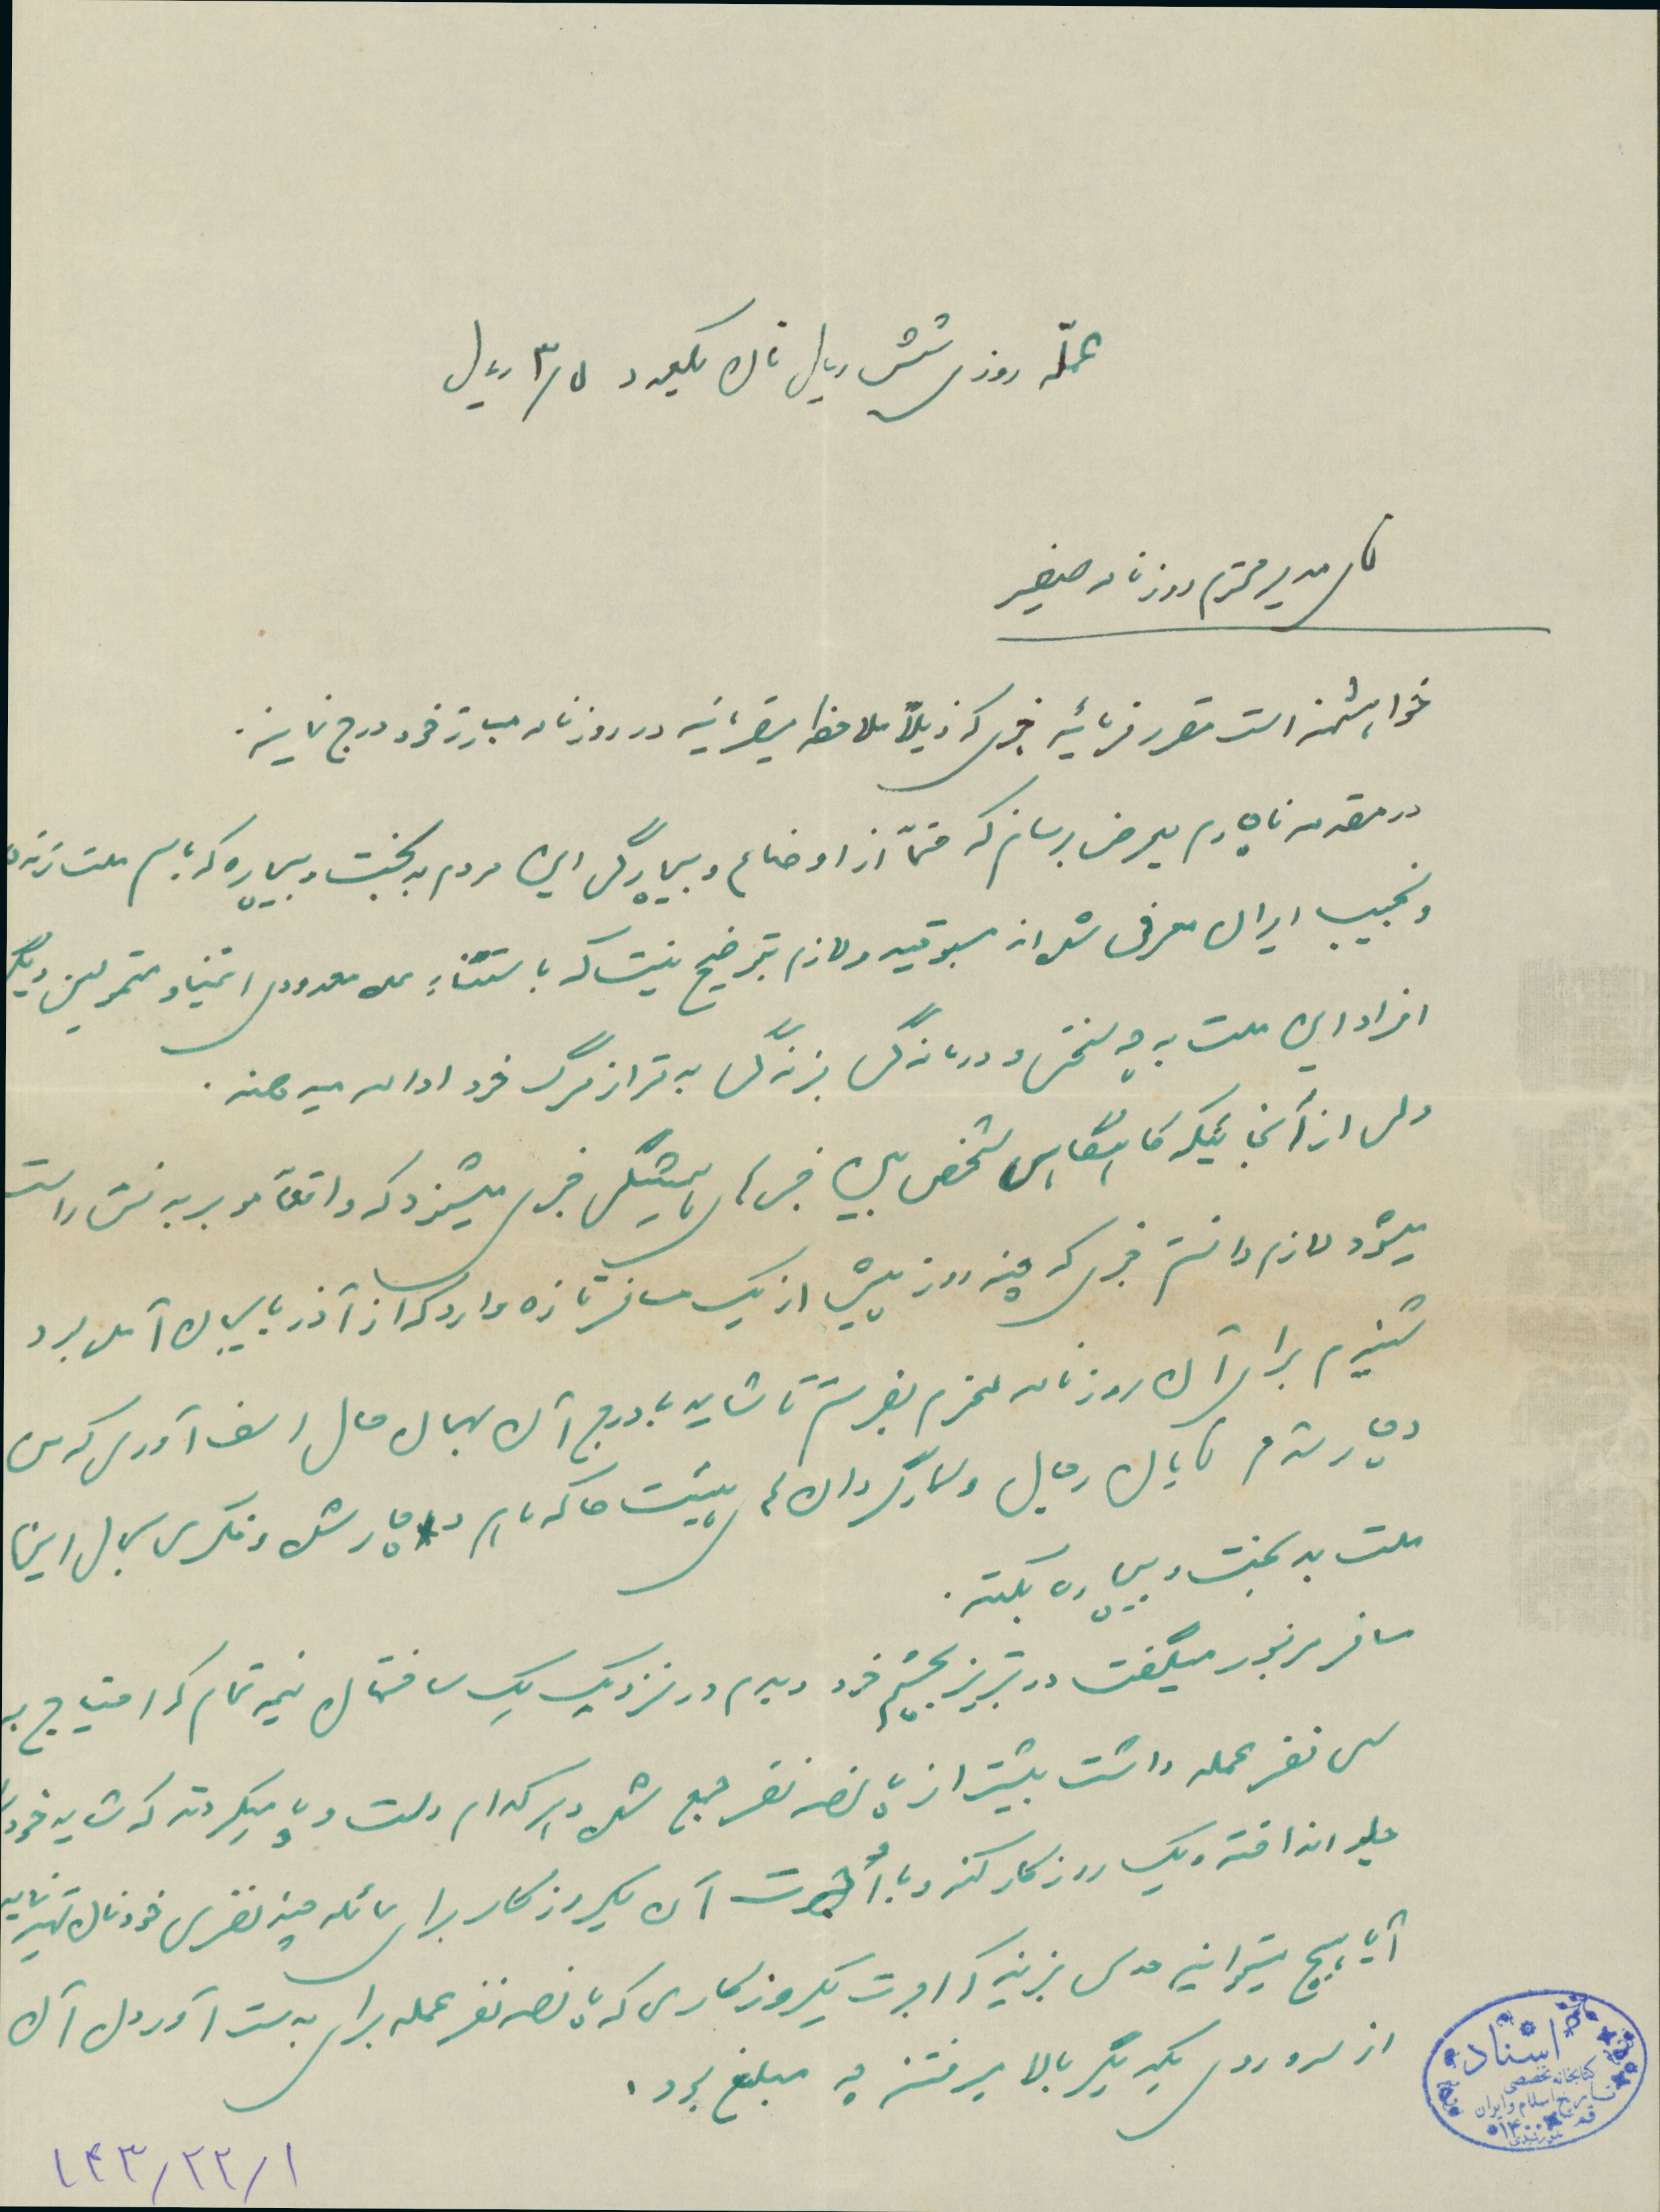 عملّه روزی شش ریال نان یکیلو ۳/۵ ریال
آقای مدیر محترم روزنامه صفیر
خواهشمند است مقرر فرمائید خبری که ذیلاً ملاحظه میفرمائید در روزنامه مبارز خود درج نمایند.
در مقدمه ناچارم بعرض برسانم که حتماً از اوضاع و بیچارگی این مردم بدبخت و بیچاره که باسم ملت زنده
و نجیب ایران معرفی شده‌اند مسبوقید و لازم بتوضیح نیست که باستثناء عده معدودی اغنیا و متمولین دیگر
افراد این ملت به چه سختی و درماندگی بزندگی بدتر از مرگ خود ادامه میدهند.
ولی از آنجائیکه گاهگاهی شخص بین خبرهای همیشگی خبری میشنود که واقعاً مو بر بدنش راست
میشود لازم دانستم خبری که چند روز پیش از یک مسافر تازه وارد که از آذربایجان آمده بود
شنیدم برای آن روزنامه محترم بفرستم تا شاید با درج آن بهمان حال اسف‌آوری که من
دچار شدم آقایان رجال و کارگردانهای هیئت حاکمه هم دچار شده و فکری بحال این
ملت بدبخت و بیچاره بکنند.
مسافر مزبور میگفت در تبریز بچشم خود دیدم در نزدیک یک ساختمان نیمه تمام که احتیاج به
سی نفر عمله داشت بیشتر از پانصد نفر جمع شده و هر کدام دست و پا میکردند که شاید خود را
جلو انداخته و یک روز کار کند و با اُجرت آن یکروز کار برای عائله چند نفری خود نان تهیه نماید
آیا هیچ میتوانید حدس بزنید که اجرت یکروز کاری که پانصد نفر عمله برای بدست آوردن آن
از سر و روی یکدیگر بالا میرفتند چه مبلغ بود.
۱۴۳/۲۲/۱
اسناد
کتابخانه تخصصی
تاریخ اسلام و ایران
قم